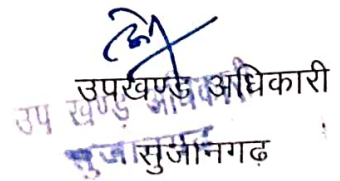 उपखण्ड अधिकारी
उप खण्ड अधिकारी
सुजानगढ़
सुजानगढ़